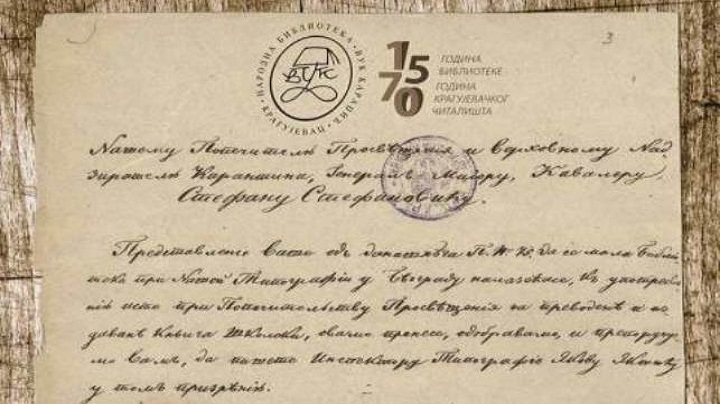 НАРОДНА БИБЛИОТЕКА ВУК КАРАЏИЋ КРАГУЈЕВАЦ
ВУК
150 ГОДИНА БИБЛИОТЕКЕ
170 ГОДИНА КРАГУЈЕВАЧКОГ ЧИТАЛИШТА
3
Нашему Попечителю Просвѣщенія и Верховному Над
зирателю Карантина, Генералъ Маіору, Кавалеру
Стефану Стефановићу.
Представленѣ Ваше одъ данашнѣга П. № да се мала Библіо
тека при Нашой Типографіи у Београду налазећасе, къ употреблѣ
нію исто при Попечительству Просвѣщенія за преводенѣ и из
даванѣ Књига Школски, овамо пренесе, одобравамо, и препоручуе
мо Вамъ, да пишете Инспектору Типографіе Якову Якшићу
у томъ призрѣнію.